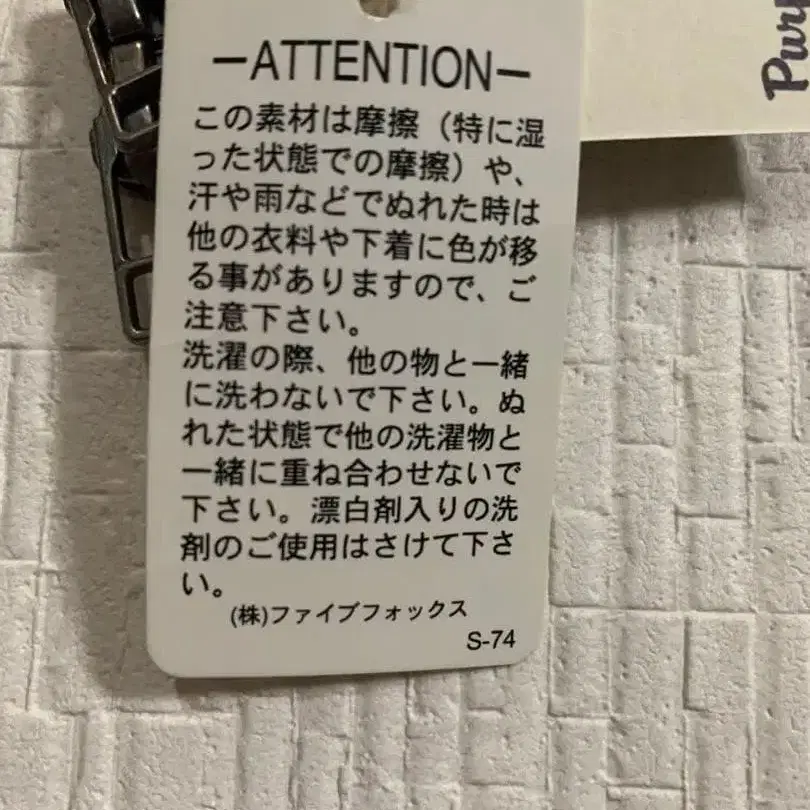 -ATTENTION-
この素材は摩擦（特に湿
った状態での摩擦）や、
汗や雨などでぬれた時は
他の衣料や下着に色が移
る事がありますので、ご
注意下さい。
洗濯の際、他の物と一緒
に洗わないで下さい。ぬ
れた状態で他の洗濯物と
一緒に重ね合わせないで
下さい。漂白剤入りの洗
剤のご使用はさけて下さ
い。
(株)ファイブフォックス
S-74